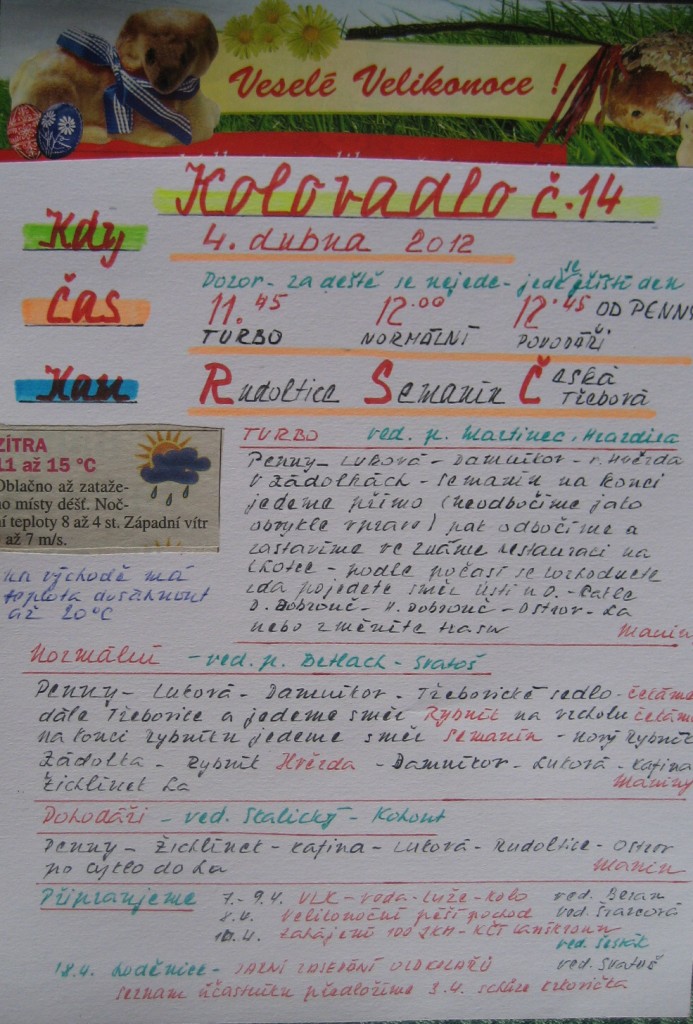 Veselé Velikonoce !
Kolovadlo č.14
Kdy 4. dubna 2012
Dozor - za deště se nejede - jede se příští den
čas 11.45 12.00 12.45 OD PENNY
TURBO NORMÁLNÍ POHODÁŘI
Kam Rudoltice Semanín Česká Třebová
ZÍTRA
11 až 15 °C
Oblačno až zataže-
no místy déšť. Noč-
ní teploty 8 až 4 st. Západní vítr
až 7 m/s.
na východě má
teplota dosáhnout
až 20°C
TURBO ved. p. Martinec, Hrazdira
Penny - Luková - Damníkov - r. Hvězda
v Zádolkách - Semanín na konci
jedeme přímo (neodbočíme jako
obvykle vpravo) pak odbočíme a
zastavíme ve známé restauraci na
Lhotce - podle počasí se rozhodnete
zda pojedete směr Ústí n O. -
D. Dobrouč - H. Dobrouč - Ostrov - La
nebo změníte trasu Manin
Normální - ved. p. Betlach - Svatoš
Penny - Luková - Damníkov - Třebovické sedlo - čekáme
dále Třebovice a jedeme směr Rybník na vrcholu čekáme
na konci Rybníku jedeme směr Semanín - Nový Rybník
Zádolka - Rybník Hvězda - Damníkov - Luková - Kafina
Žichlínek La Maniny
Pohodáři - ved. Skalický - Kohout
Penny - Žichlínek - Kafina - Luková - Rudoltice - Ostrov
po cyklo do La Manin
Připravujeme 7.- 9.4. VLK - voda - lyže - kolo ved. Beran
8.4. Velikonoční pěší pochod ved. Švarcová
10.4. Zahájení 100 JKM - KČT Lanškroun
ved. Šesták
18.4. Loděnice - JARNÍ ZASEDÁNÍ ved. Svatoš
seznam účastníků předložíme 3.4. schůze